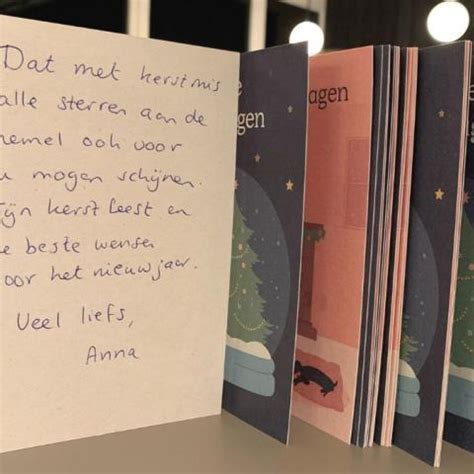 Dat met kerstmis
alle sterren aan de
hemel ook voor
u mogen schijnen.
Fijn kerstfeest en
e beste wensen
oor het nieuwjaar.
Veel liefs,
Anna
e
gen
agen